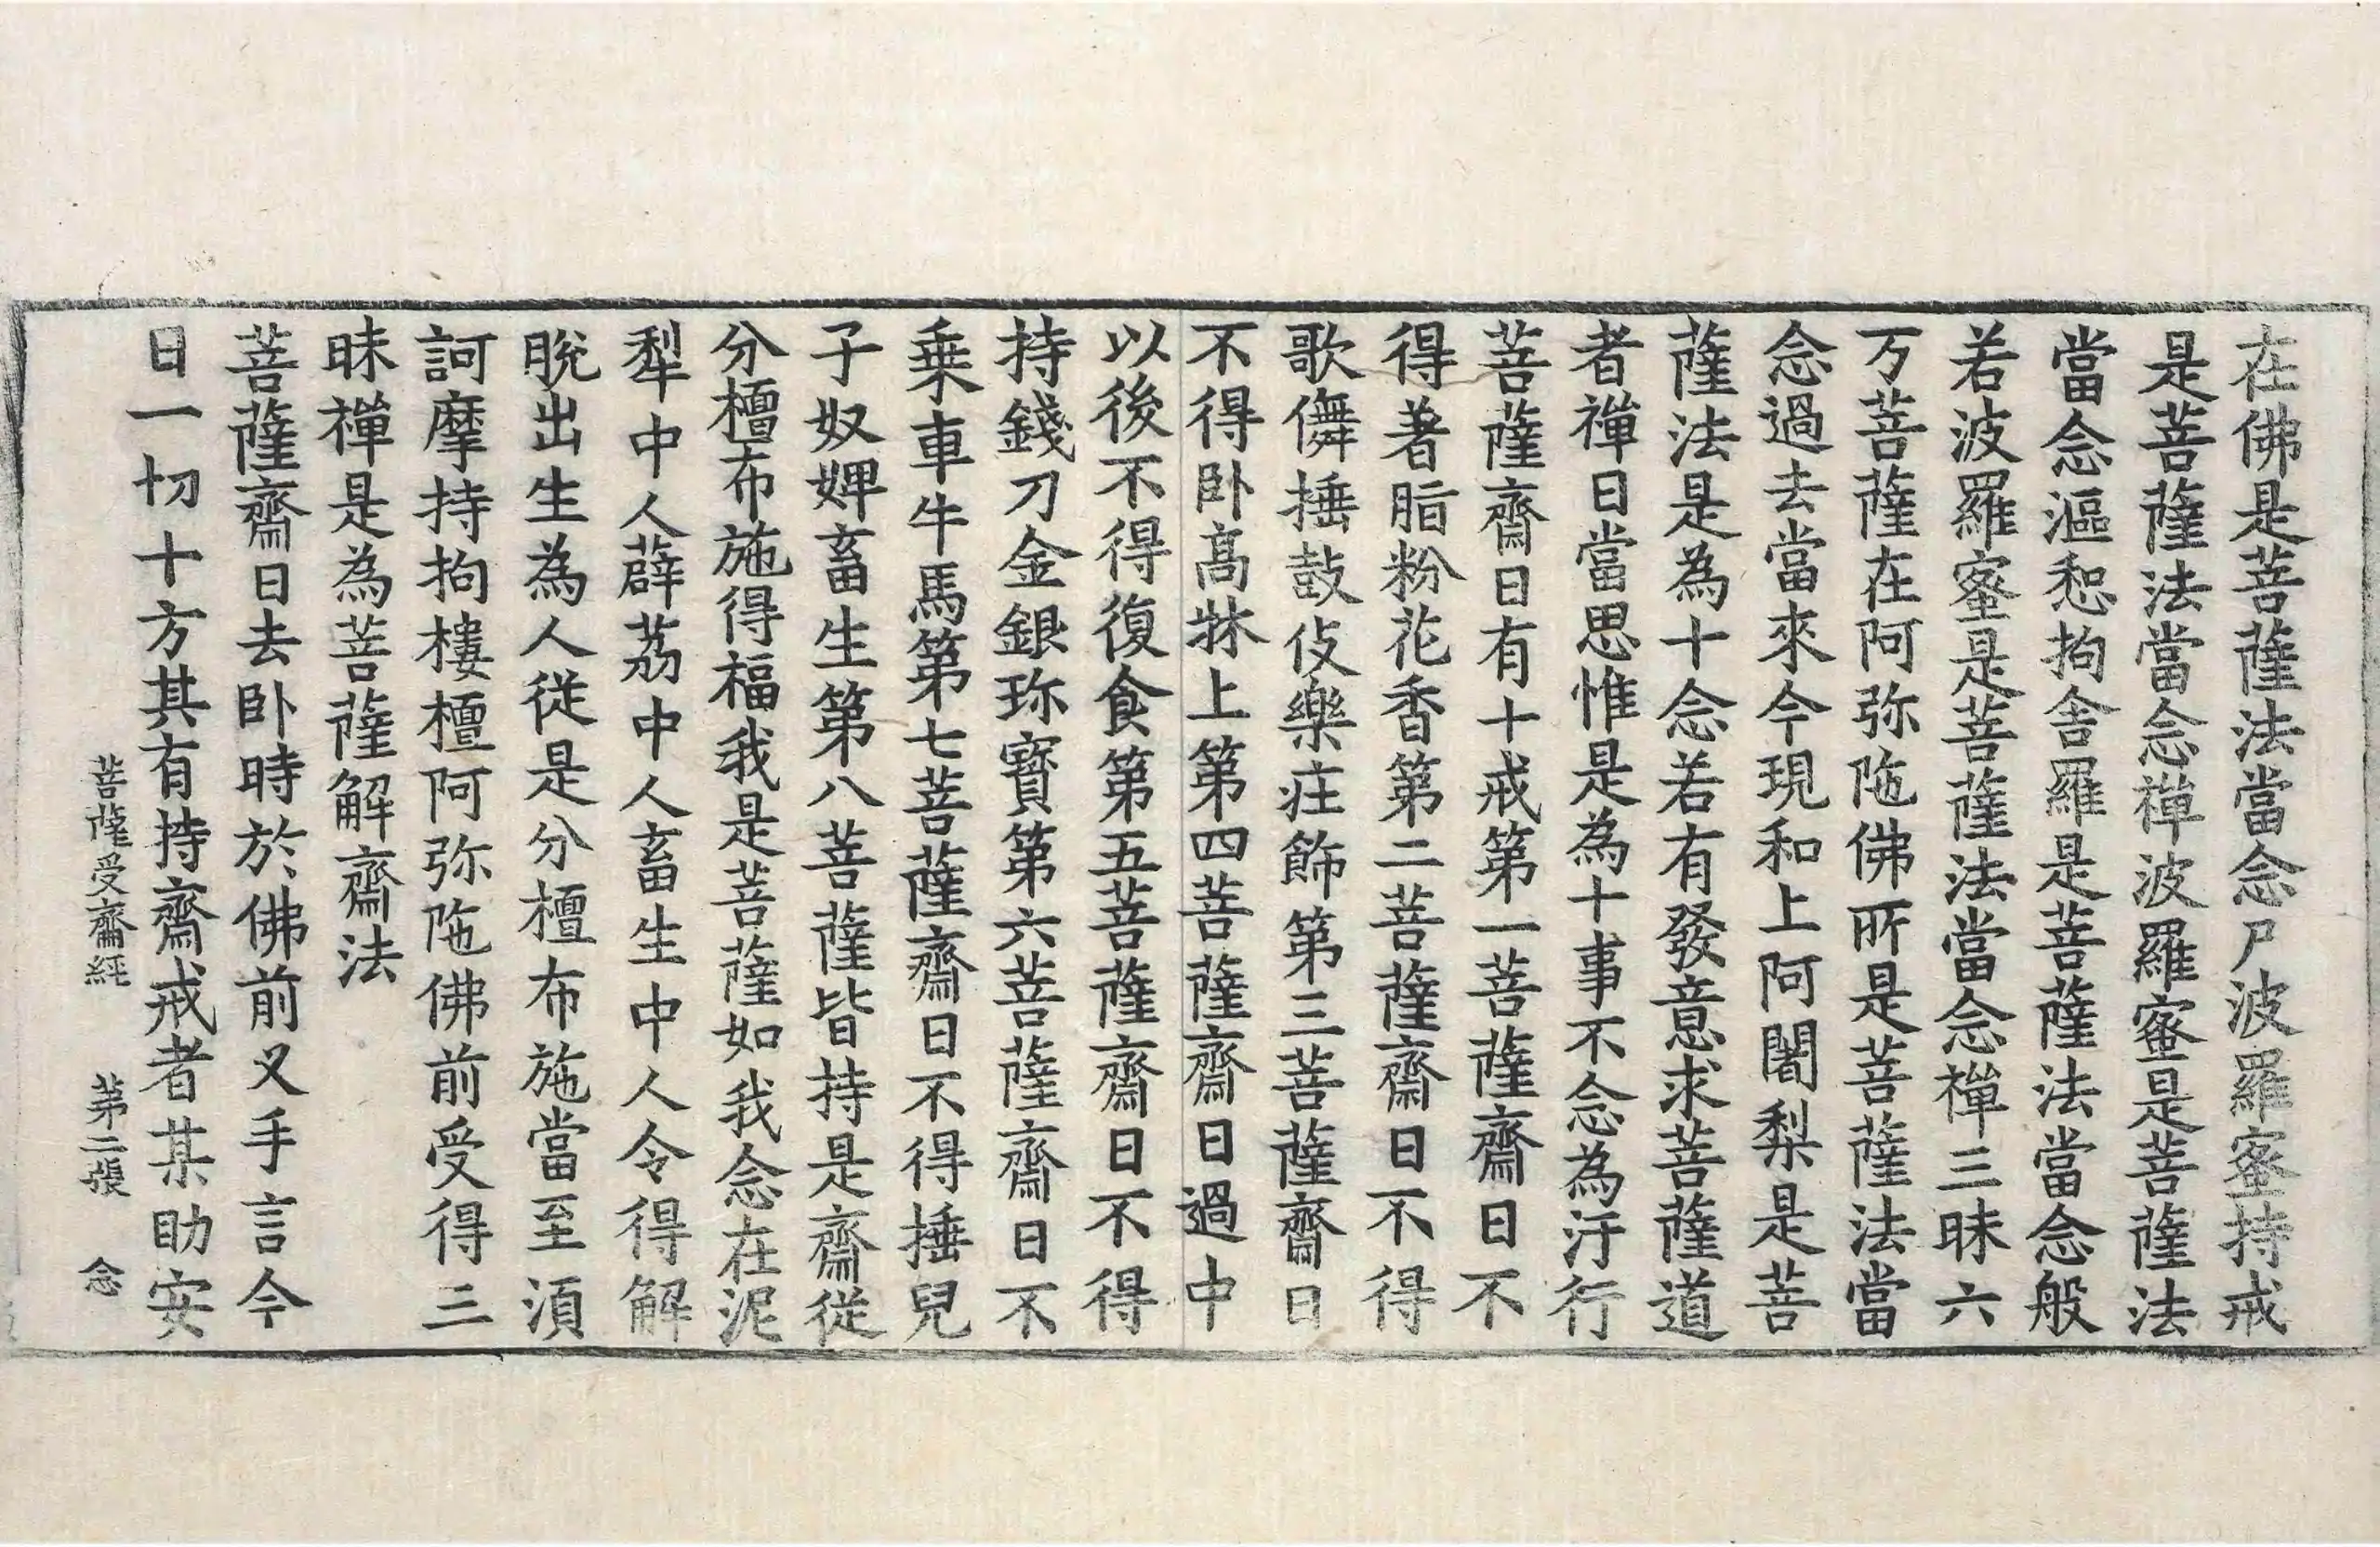 在佛是菩薩法當念尸波羅蜜持戒
是菩薩法當念禪波羅蜜是菩薩法
當念漚惒拘舍羅是菩薩法當念般
若波羅蜜是菩薩法當念禪三昧六
万菩薩在阿弥陁佛所是菩薩法當
念過去當來今現和上阿闍梨是菩
薩法是為十念若有發意求菩薩道
者禪日當思惟是為十事不念為汙行
菩薩齋日有十戒第一菩薩齋日不
得著脂粉花香第二菩薩齋日不得
歌儛捶鼓伎樂莊飾第三菩薩齋日
不得卧高牀上第四菩薩齋日過中
以後不得復食第五菩薩齋日不得
持錢刀金銀珎寶第六菩薩齋日不
乗車牛馬第七菩薩齋日不得捶兒
子奴婢畜生第八菩薩皆持是齋從
分檀布施得福我是菩薩如我念在泥
犁中人薜荔中人畜生中人令得解
脫出生為人從是分檀布施當至湏
訶摩持拘樓檀阿弥陁佛前受得三
昧禪是為菩薩解齋法
菩薩齋日去卧時於佛前叉手言今
日一切十方其有持齋戒者某助安
菩薩受齋經 第二張 念